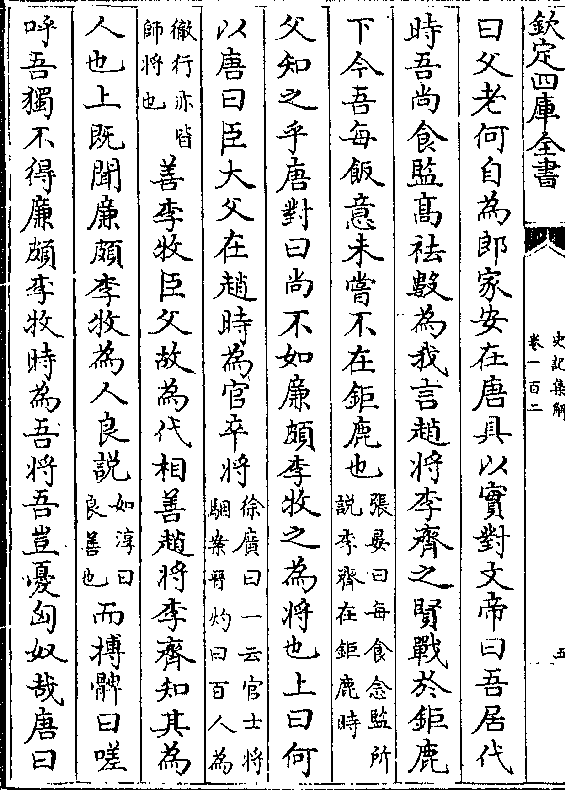 欽定四庫全書
史記集解
卷一百二
五
曰父老何自為郎家安在唐具以實對文帝曰吾居代
時吾尚食監髙祛數為我言趙將李齊之賢戰於鉅鹿
下今吾每飯意未嘗不在鉅鹿也
張晏曰每食念監所
說李齊在鉅鹿時
父知之乎唐對曰尚不如廉頗李牧之為將也上曰何
以唐曰臣大父在趙時為官卒將
徐廣曰一云官士將
駰案晉灼曰百人為
徹行亦皆
師將也
善李牧臣父故為代相善趙將李齊知其為
人也上既聞廉頗李牧為人良說
如淳曰
良善也
而搏髀曰嗟
呼吾獨不得廉頗李牧時為吾將吾豈憂匈奴哉唐曰